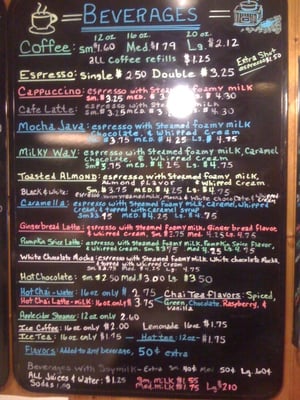 BEVERAGES
12oz 16oz 20oz
Coffee: sm $1.60 Med $1.79 Lg. $2.12
all Coffee refills $1.25
Extra Shot
espresso $1.50
Espresso: Single $2.50 Double $3.25
Cappuccino: espresso with steamed foamy milk
Cafe Latte: espresso with steamed milk
Mocha Java: espresso with steamed foamy milk
chocolate, & whipped cream
Sm $3.75 Med $4.25 Lg $4.75
Milky Way: espresso with steamed foamy milk, Caramel
chocolate, & whipped cream
Sm $3.75 Med $4.25 Lg $4.75
Toasted Almond: espresso with steamed foamy milk,
Almond flavor & whipped cream
Sm $3.75 Med. $4.25 Lg. $4.75
Black & White:
Caramella: espresso with steamed foamy milk, Caramel, whipped
Med. $4.25 Lg. $4.75
Gingerbread Latte: espresso with steamed foamy milk, Ginger bread flavor,
& whipped cream
Pumpkin Spice Latte: espresso with steamed foamy milk, Pumpkin Spice Flavor,
& whipped cream
White Chocolate Mocha: espresso with steamed foamy milk, white chocolate Mocha,
& topped with whipped cream
Sm $3.75 Med. $4.25 Lg. $4.75
Hot Chocolate: Sm $2.50 Med. $3.00 Lg $3.50
Hot Chai-water: 16oz only $2.75 Chai Tea Flavors: Spiced,
Hot Chai Latte-milk: 16oz only $3.75 Green, Chocolate, Raspberry, &
Vanilla
Applecider Steamer: 12oz only 2.60
Ice Coffee: 16oz only $2.00 Lemonade 16oz $1.75
Ice Tea: 16oz only $1.75 Hot tea: 12oz $1.75
Flavors: Added to any beverage, 50¢ extra
Beverages with Soymilk - Extra Sm 40¢ Med 50¢ Lg. 60¢
All Juices & Water: $1.25
Sodas